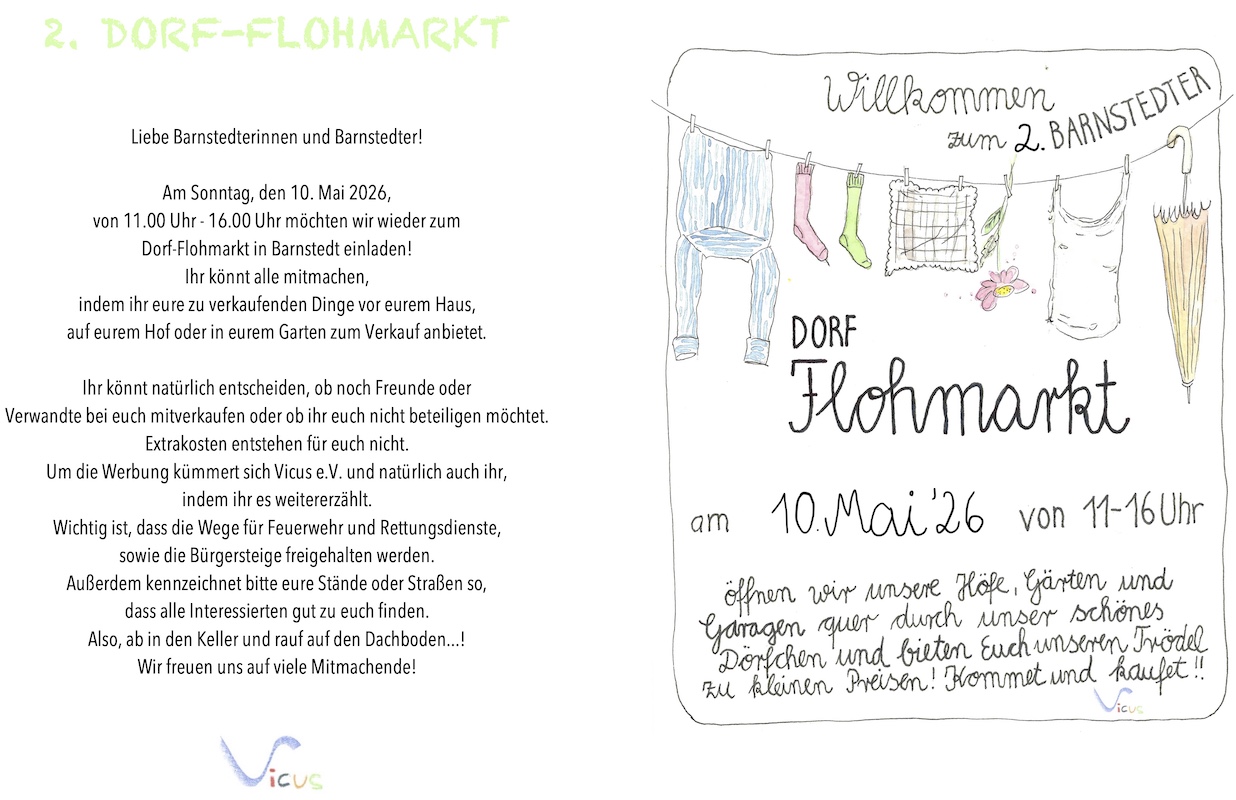 2. DORF-FLOHMARKT
Liebe Barnstedterinnen und Barnstedter!
Am Sonntag, den 10. Mai 2026,
von 11.00 Uhr - 16.00 Uhr möchten wir wieder zum
Dorf-Flohmarkt in Barnstedt einladen!
Ihr könnt alle mitmachen,
indem ihr eure zu verkaufenden Dinge vor eurem Haus,
auf eurem Hof oder in eurem Garten zum Verkauf anbietet.
Ihr könnt natürlich entscheiden, ob noch Freunde oder
Verwandte bei euch mitverkaufen oder ob ihr euch nicht beteiligen möchtet.
Extrakosten entstehen für euch nicht.
Um die Werbung kümmert sich Vicus e.V. und natürlich auch ihr,
indem ihr es weitererzählt.
Wichtig ist, dass die Wege für Feuerwehr und Rettungsdienste,
sowie die Bürgersteige freigehalten werden.
Außerdem kennzeichnet bitte eure Stände oder Straßen so,
dass alle Interessierten gut zu euch finden.
Also, ab in den Keller und rauf auf den Dachboden...!
Wir freuen uns auf viele Mitmachende!
Vicus
Willkommen
zum 2. BARNSTEDTER
DORF
Flohmarkt
am 10. Mai '26 von 11-16 Uhr
öffnen wir unsere Höfe, Gärten und
Garagen quer durch unser schönes
Dörfchen und bieten Euch unseren Trödel
zu kleinen Preisen! Kommet und kaufet!!
Vicus